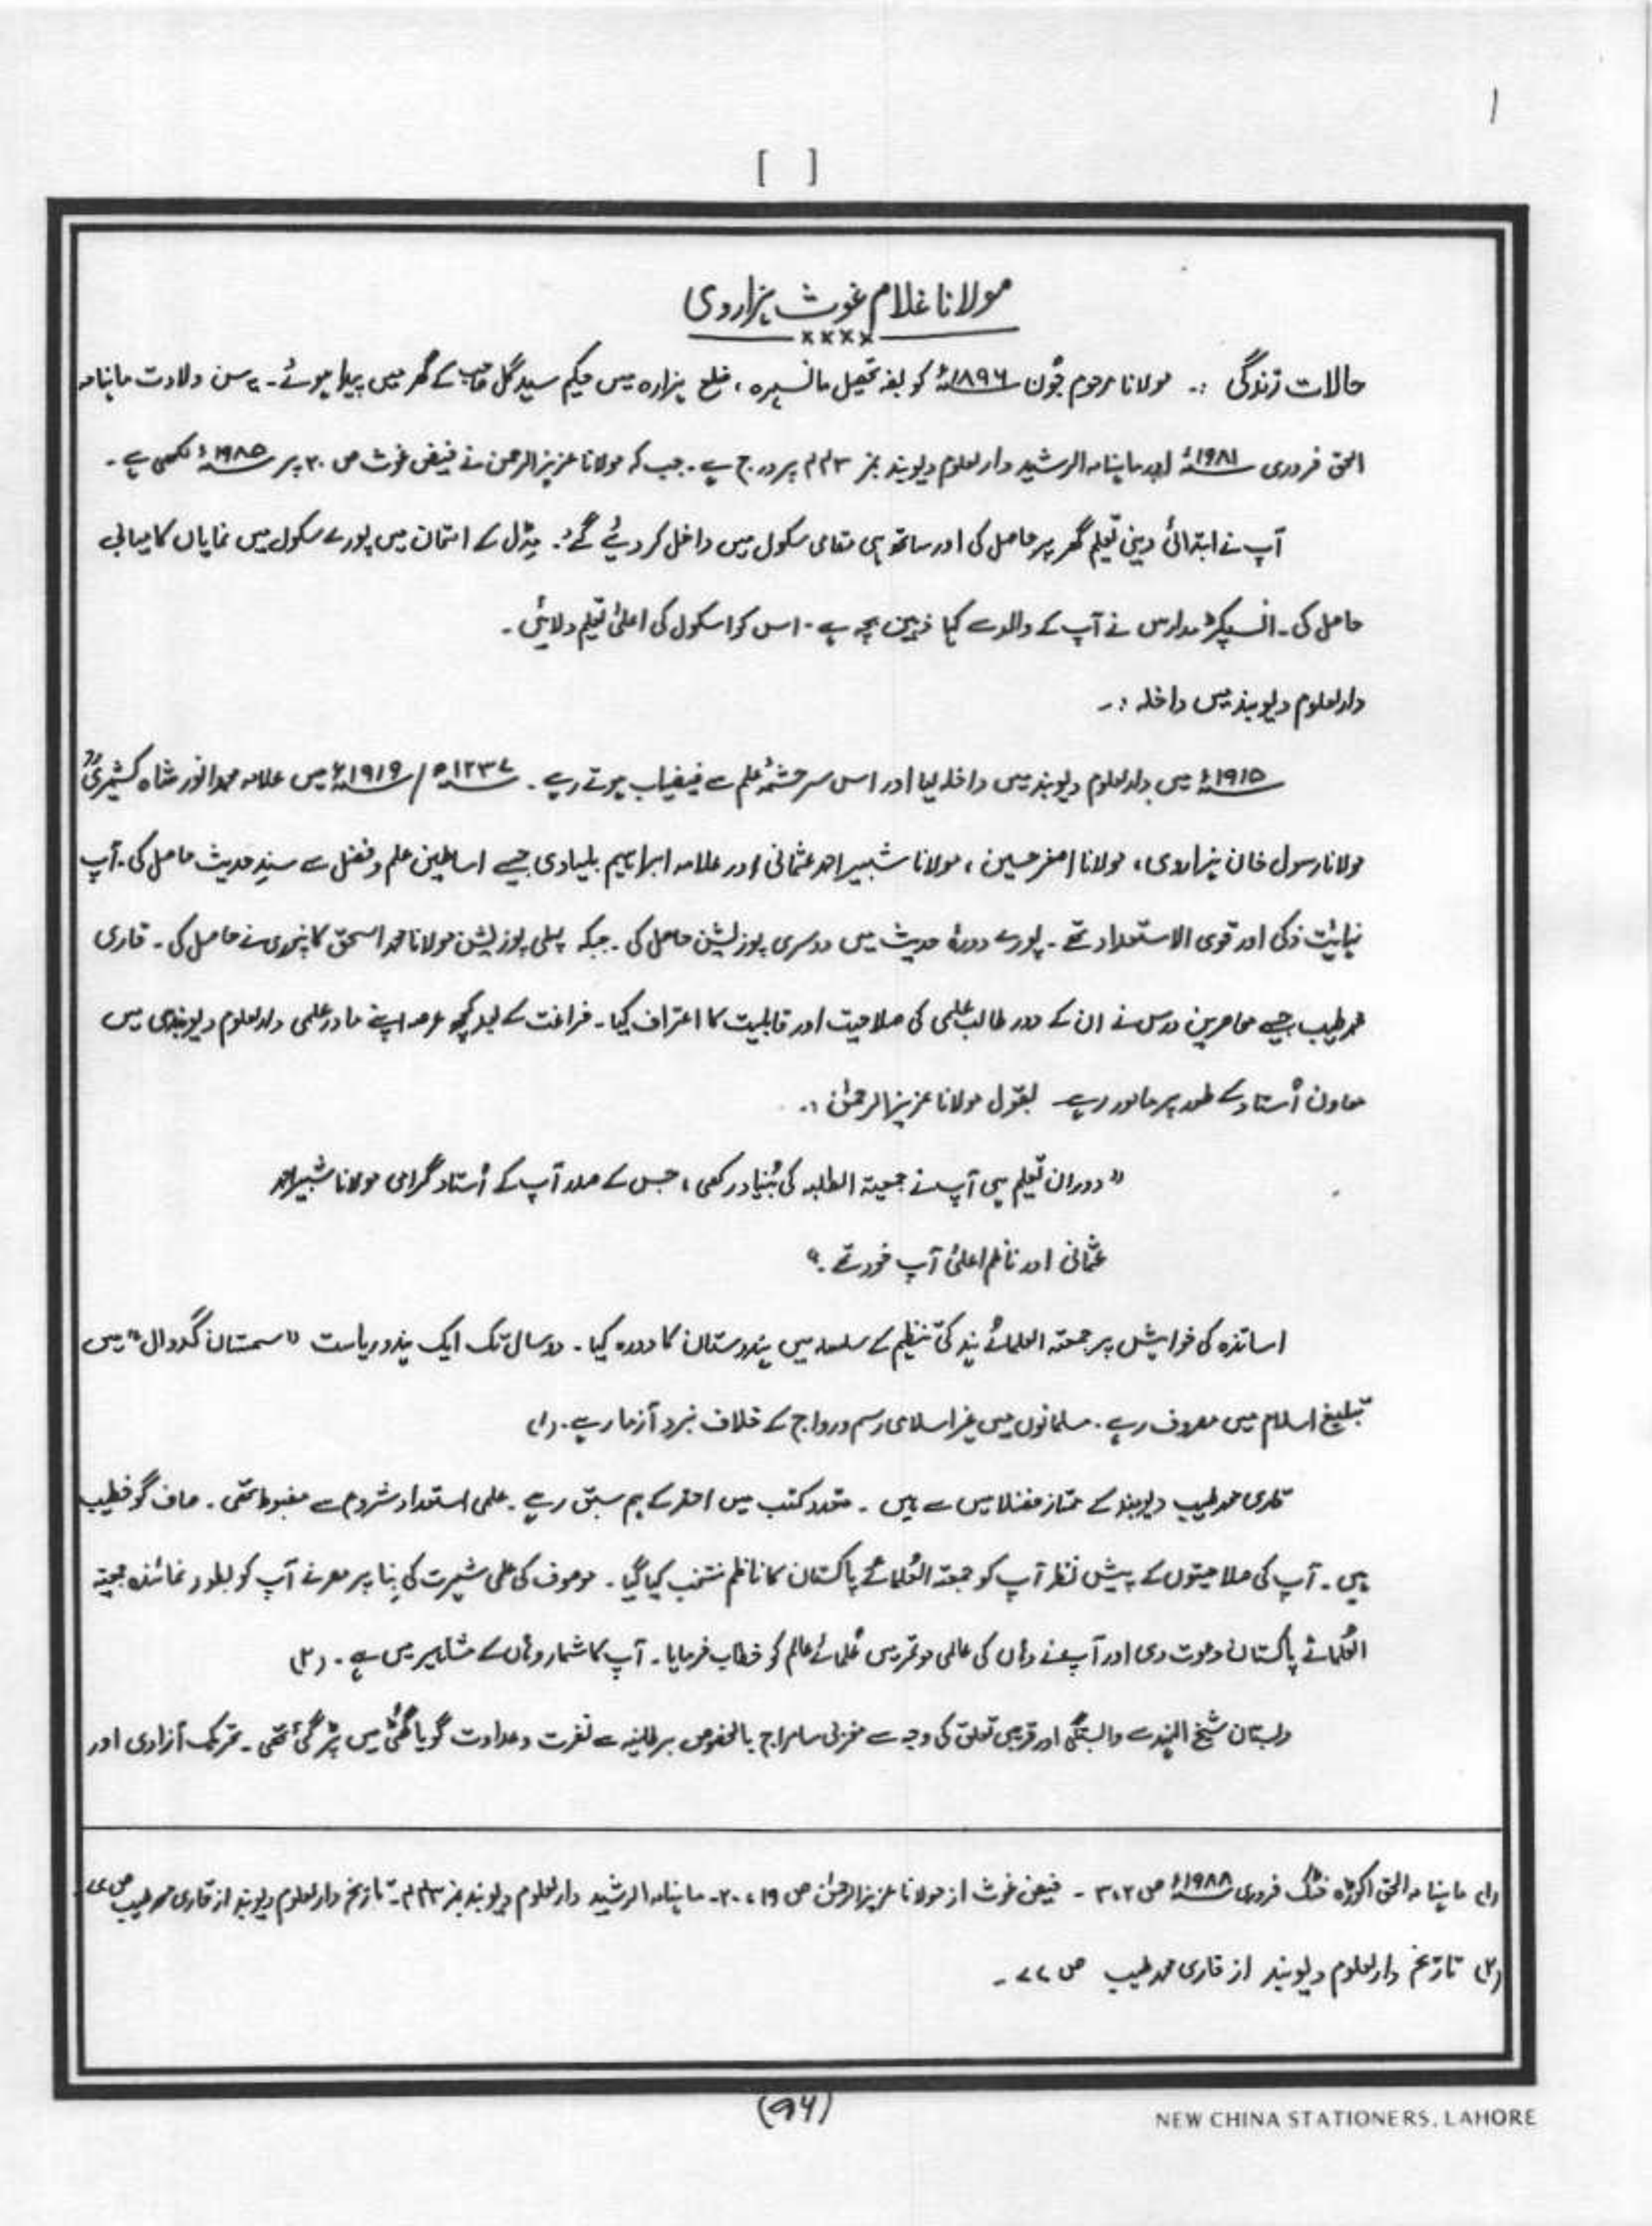 1
[ ]
مولانا غلام غوث ہزاروی
××××
حالات زندگی :۔ مولانا مرحوم جُون ۱۸۹۶ء کو بفہ تحصیل مانسہرہ ، ضلع ہزارہ میں حکیم سید گل صاحب کے گھر میں پیدا ہوئے۔ یہ سن ولادت ماہنامہ
الحق فروری ۱۹۸۱ء اور ماہنامہ الرشید دارالعلوم دیوبند نمبر ۴۴۳ پر درج ہے۔ جب کہ مولانا عزیز الرحمن نے فیض غوث ص ۲۰ پر ۱۹۸۵ء لکھی ہے۔
آپ نے ابتدائی دینی تعلیم گھر پر حاصل کی اور ساتھ ہی مقامی سکول میں داخل کر دیئے گئے۔ مڈل کے امتحان میں پورے سکول میں نمایاں کامیابی
حاصل کی۔ انسپکٹر مدارس نے آپ کے والد سے کہا ذہین بچہ ہے۔ اس کو اسکول کی اعلیٰ تعلیم دلائیں۔
دارالعلوم دیوبند میں داخلہ :۔
۱۹۱۵ء میں دارالعلوم دیوبند میں داخلہ لیا اور اس سرچشمۂ علم سے فیضیاب ہوتے رہے۔ ۱۲۳۷ھ / ۱۹۱۹ء میں علامہ محمد انور شاہ کشمیریؒ
مولانا رسول خان ہزاروی ، مولانا اصغر حسین ، مولانا شبیر احمد عثمانی اور علامہ ابراہیم بلیاوی جیسے اساطین علم و فضل سے سندِ حدیث حاصل کی۔ آپ
نہایت ذکی اور قوی الاستعداد تھے۔ پورے دورۂ حدیث میں دوسری پوزیشن حاصل کی۔ جبکہ پہلی پوزیشن مولانا محمد اسحق کانپوری نے حاصل کی۔ قاری
محمد طیب جیسے معاصرین درس نے ان کے دور طالب علمی کی صلاحیت اور قابلیت کا اعتراف کیا۔ فراغت کے بعد کچھ عرصہ اپنے مادرِ علمی دارالعلوم دیوبند ہی میں
معاون اُستاد کے طور پر مامور رہے بقول مولانا عزیز الرحمٰن :۔
" دوران تعلیم ہی آپ نے جمعیتہ الطلبہ کی بُنیاد رکھی ، جس کے صدر آپ کے اُستاد گرامی مولانا شبیر احمد
عثمانی اور ناظم اعلیٰ آپ خود تھے۔ "
اساتذہ کی خواہش پر جمعتہ العلمائے ہند کی تنظیم کے سلسلہ میں ہندوستان کا دورہ کیا۔ دو سال تک ایک ہندو ریاست " سمستان گدوال " میں
تبلیغ اسلام میں مصروف رہے۔ مسلمانوں میں غیر اسلامی رسم و رواج کے خلاف نبرد آزما رہے۔ (۱)
قاری محمد طیب دیوبند کے ممتاز فضلا میں سے ہیں۔ متعدد کتب میں احقر کے ہم سبق رہے۔ علمی استعداد شروع سے مضبوط تھی۔ صاف گو خطیب
ہیں۔ آپ کی صلاحیتوں کے پیش نظر آپ کو جمعتہ العُلمائے پاکستان کا ناظم منتخب کیا گیا۔ موصوف کی علمی شہرت کی بِنا پر مصر نے آپ کو بطور نمائندہ جمعیتہ
العُلمائے پاکستان دعوت دی اور آپ نے وہاں کی عالمی موتمر میں عُلمائے عالم کو خطاب فرمایا۔ آپ کا شمار وہاں کے مشاہیر میں ہے۔ (۲)
دبستان شیخ الہند سے وابستگی اور قریبی تعلق کی وجہ سے مغربی سامراج بالخصوص برطانیہ سے نفرت و عداوت گویا گھُٹی میں پڑ گئی تھی۔ تحریک آزادی اور
(۱) ماہنامہ الحق اکوڑہ خٹک فروری ۱۹۸۸ء ص ۳،۲ ۔ فیض غوث از مولانا عزیز الرحمٰن ص ۱۹ ، ۲۰۔ ماہنامہ الرشید دارالعلوم دیوبند نمبر ۴۴۳۔ تاریخ دارالعلوم دیوبند از قاری محمد طیب ص
(۲) تاریخ دارالعلوم دیوبند از قاری محمد طیب ص ۷۷ ۔
(۹۶)
NEW CHINA STATIONERS, LAHORE